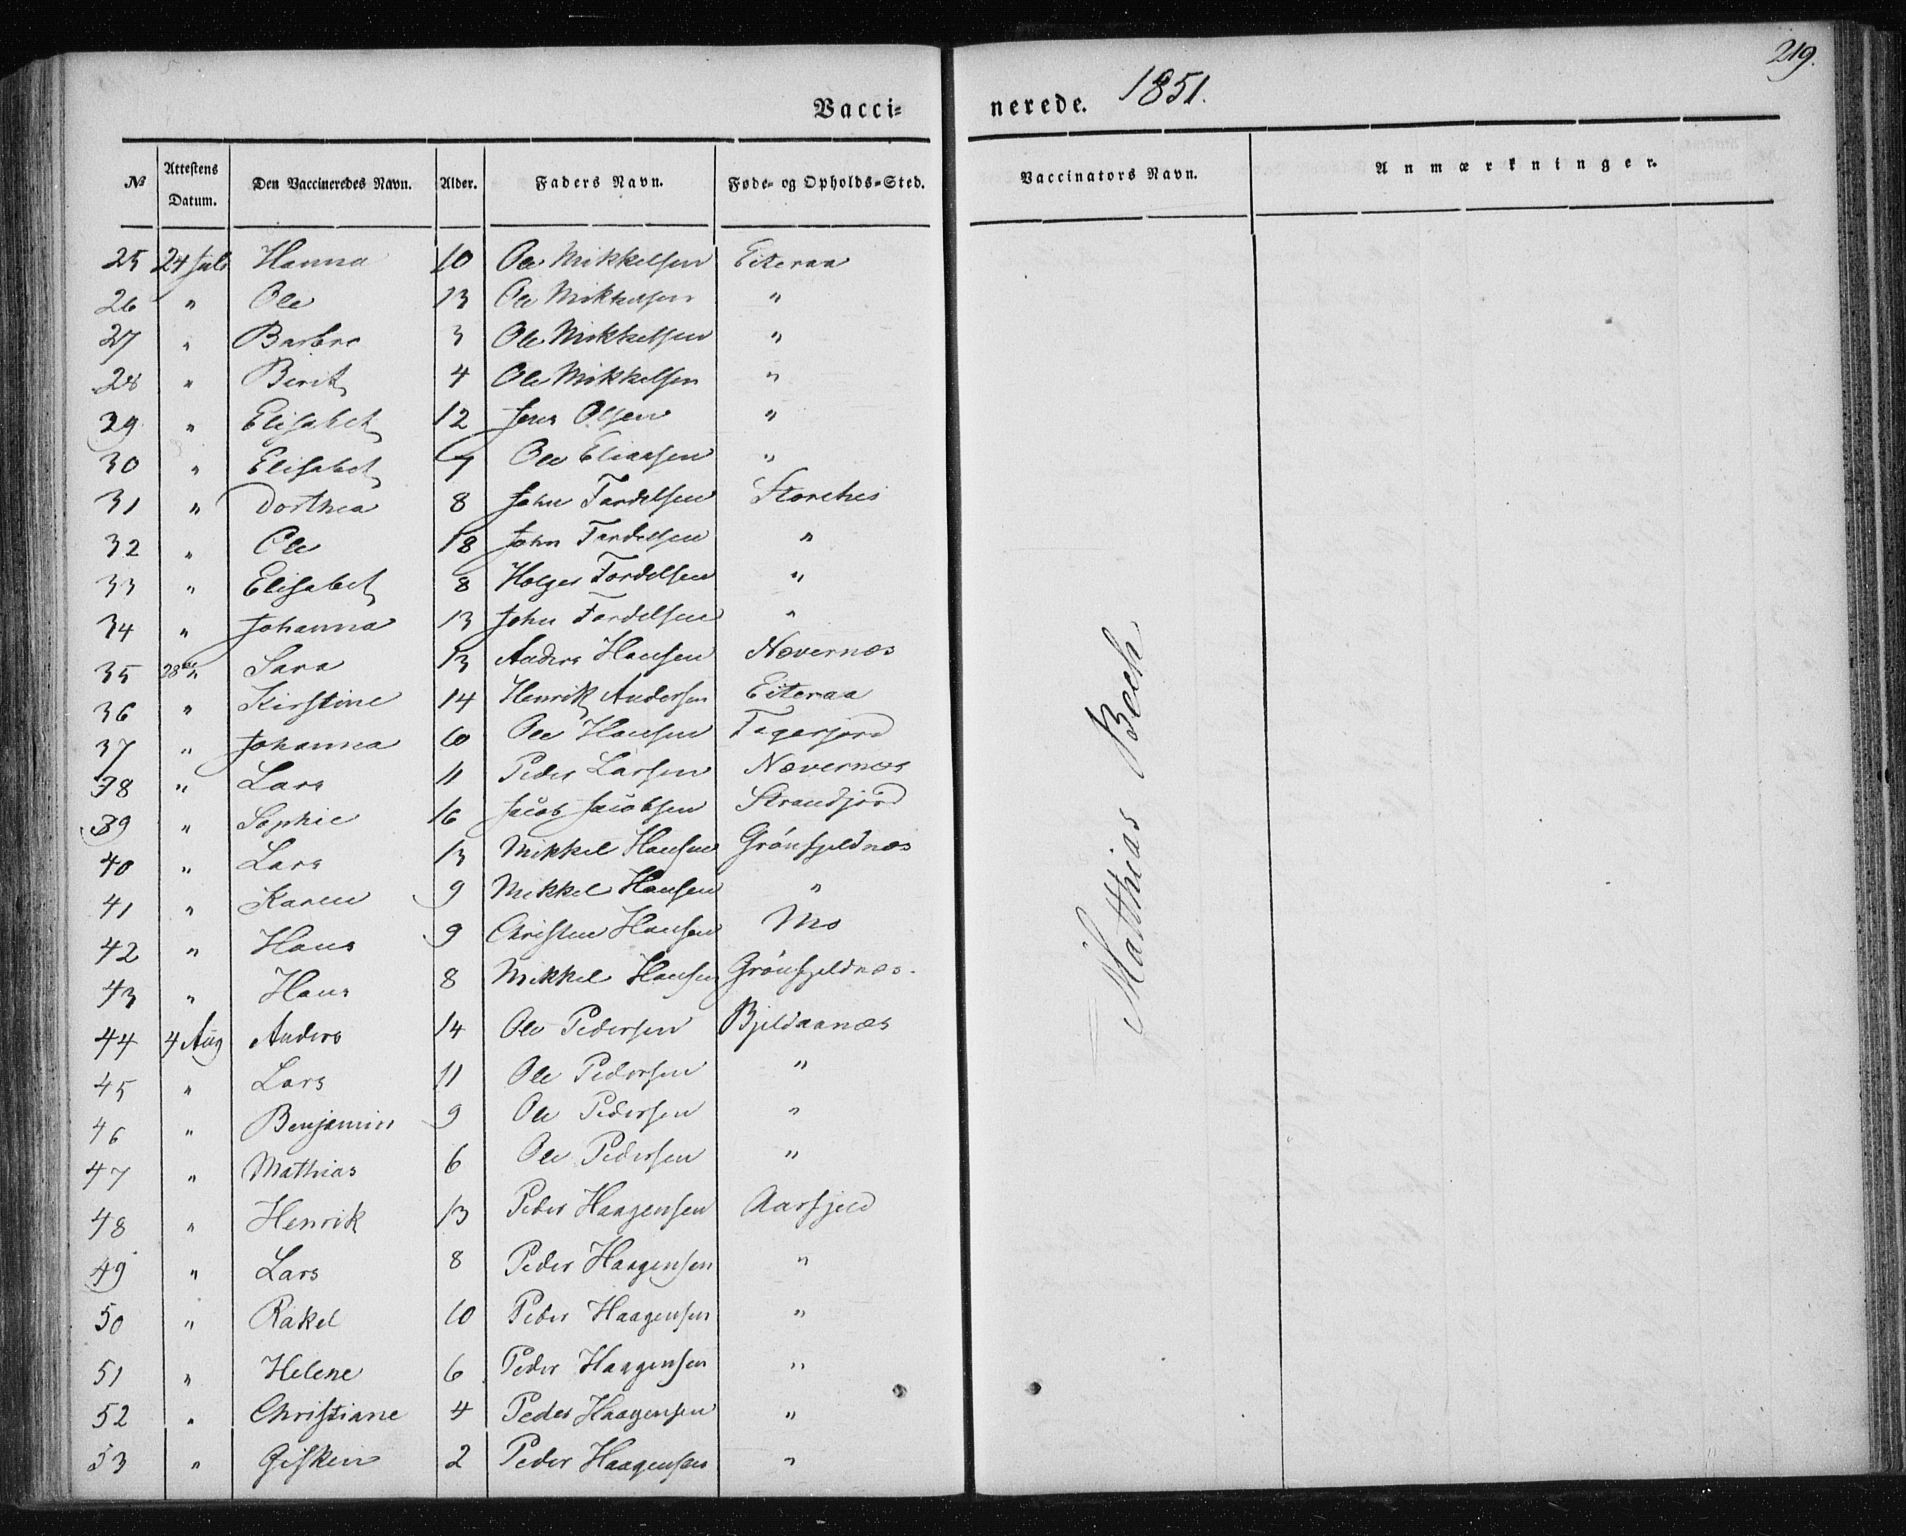 219.
Vacci- nerede. 1851.
№ Attestens Datum. Den Vaccineredes Navn. Alder. Faders Navn. Føde- og Opholds-Sted. Vaccinators Navn. Anmærkninger.
25 24 Juli Hanna 10 Ole Mikkelsen Eiteraa
26 " Ole 13 Ole Mikkelsen "
27 " Barbro 3 Ole Mikkelsen "
28 " Berit 4 Ole Mikkelsen "
29 " Elisabet 12 Jens Olsen "
30 " Elisabet 9 Ole Eliassen "
31 " Dorthea 8 John Tordelsen Storehei
32 " Ole 18 John Tordelsen "
33 " Elisabet 8 Holger Tordelsen "
34 " Johanna 13 John Tordelsen "
35 28 " Sara 13 Anders Hansen Nævernæs
36 " Kirstine 14 Henrik Andersen Eiteraa
37 " Johanna 10 Ole Hansen
38 " Lars 11 Peder Larsen Nævernæs
39 " Sophie 16 Jacob Jacobsen Strandjord
40 " Lars 13 Mikkel Hansen Grønfjeldnæs
41 " Karen 9 Mikkel Hansen "
42 " Hans 9 Christen Hansen Mo
43 " Hans 8 Mikkel Hansen Grønfjeldnæs.
44 4 Aug Anders 14 Ole Pedersen Bjeldaanæs
45 " Lars 11 Ole Pedersen "
46 " Benjamin 9 Ole Pedersen "
47 " Mathias 6 Ole Pedersen "
48 " Henrik 13 Peder Haagensen Aarfjeld
49 " Lars 8 Peder Haagensen "
50 " Rakel 10 Peder Haagensen "
51 " Helene 6 Peder Haagensen "
52 " Christiane 4 Peder Haagensen "
53 " Gisken 2 Peder Haagensen "
Matthias Bech